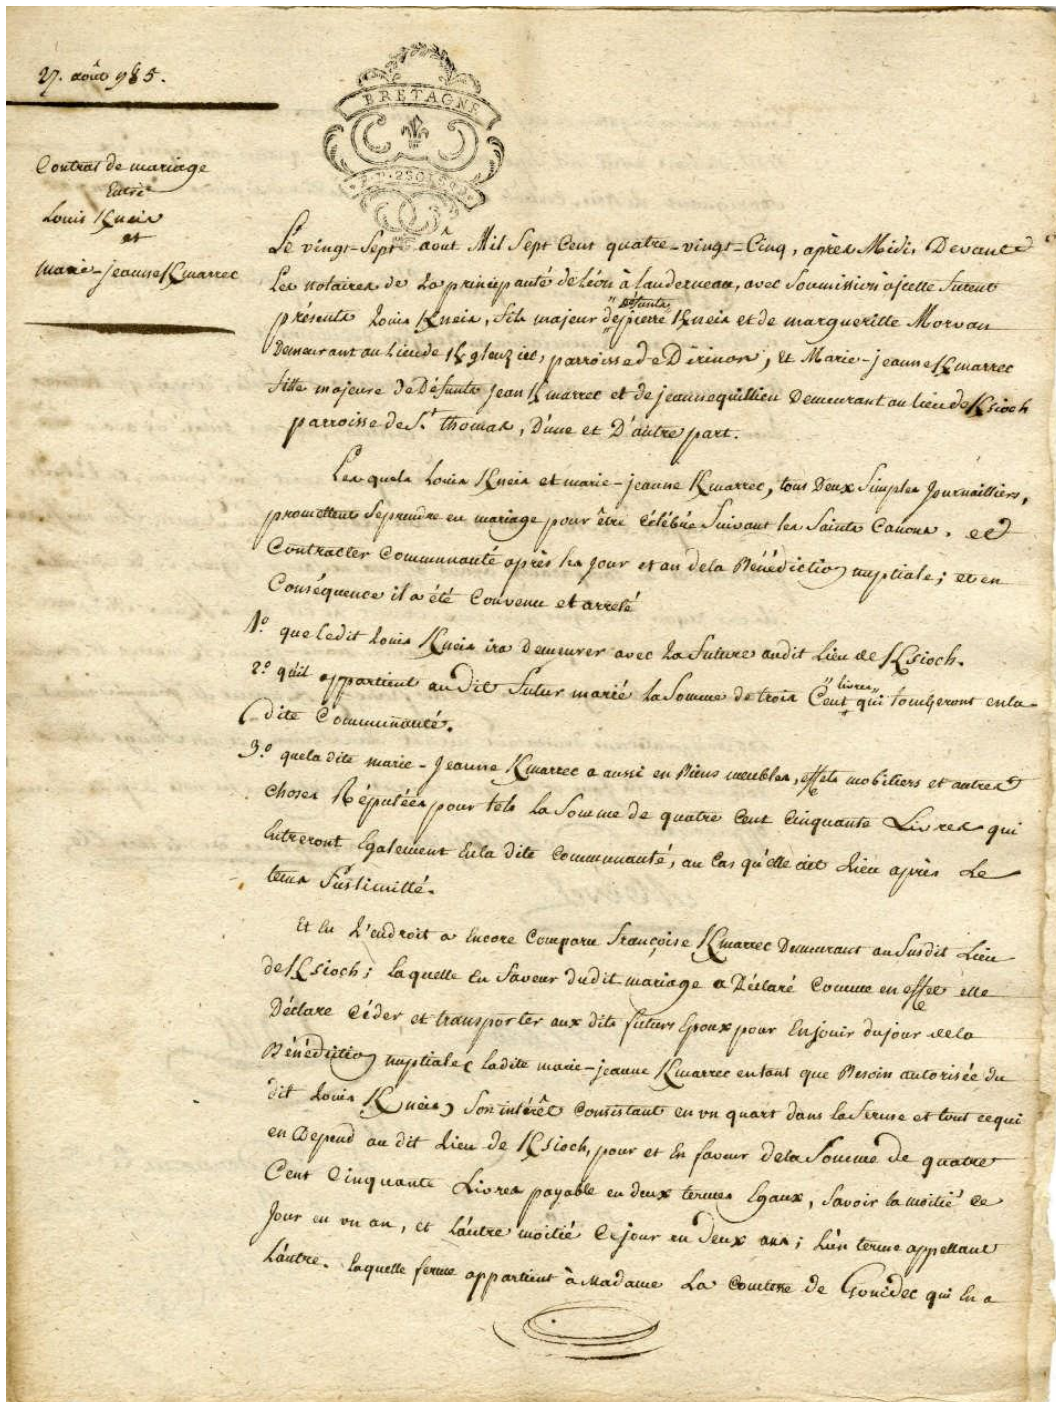 27. août 985.
BRETAGNE
Contrat de mariage
Entre
Louis Kneis
et
marie-jeanne Kmarrec
Le vingt-sept août Mil Sept Cent quatre-vingt-Cinq, après Midi, Devant
Les notaires de La principauté de Léon à Landerneau, avec Soumission à jcelle furent
"défunts"
présents Louis Kneis, fils majeur de pierre Kneis et de margueritte Morvan
Demeurant au Lieu de, parroisse de Dirinon, et Marie-jeanne Kmarrec
fille majeure de Défunts jean Kmarrec et de jeanne quillien Demeurant au lieu de Ksioch
parroisse de St. thomas, D'une et D'autre part.
Les quels Louis Kneis et marie-jeanne Kmarrec, tous Deux Simples Journailliers,
promettent Se prendre en mariage pour être Célébré Suivant les Saints Canons. et
Contracter Communauté après les jour et an de la Bénédiction nuptiale; et en
Conséquence il a été Convenu et arreté
1.º que ledit Louis Kneis ira Demeurer avec La future audit Lieu de Ksioch.
"livres"
2.º qu'il appartient au dit futur marié la Somme de trois Cent qui tomberont en la
dite Communauté.
3.º que la dite marie-Jeanne Kmarrec a aussi en Biens meubles, effets mobiliers et autres
choses Réputées pour tels la Somme de quatre Cent Cinquante Livres qui
Entreront Egalement En la dite Communauté, au Cas qu'elle ait Lieu après Le
tems
Et En L'endroit a Encore Comparu françoise Kmarrec Demeurant au Susdit Lieu
de Ksioch; laquelle En faveur dudit mariage a Déclaré Comme en effet elle
Déclare Céder et transporter aux dits futurs Epoux pour En jouir du jour de la
Bénédiction nuptiale (ladite marie-jeanne Kmarrec en tant que Besoin autorisée du
dit Louis Kneis) Son intérêt Consistant en un quart dans la ferme et tout ce qui
en Depend au dit Lieu de Ksioch, pour et En faveur de la Somme de quatre
Cent Cinquante Livres payable en deux termes Egaux, Savoir la moitié Ce
Jour en un an, et L'autre moitié Ce jour en deux ans; L'un terme appellant
L'autre. laquelle ferme appartient à Madame La Comtesse de Gouidec qui En a